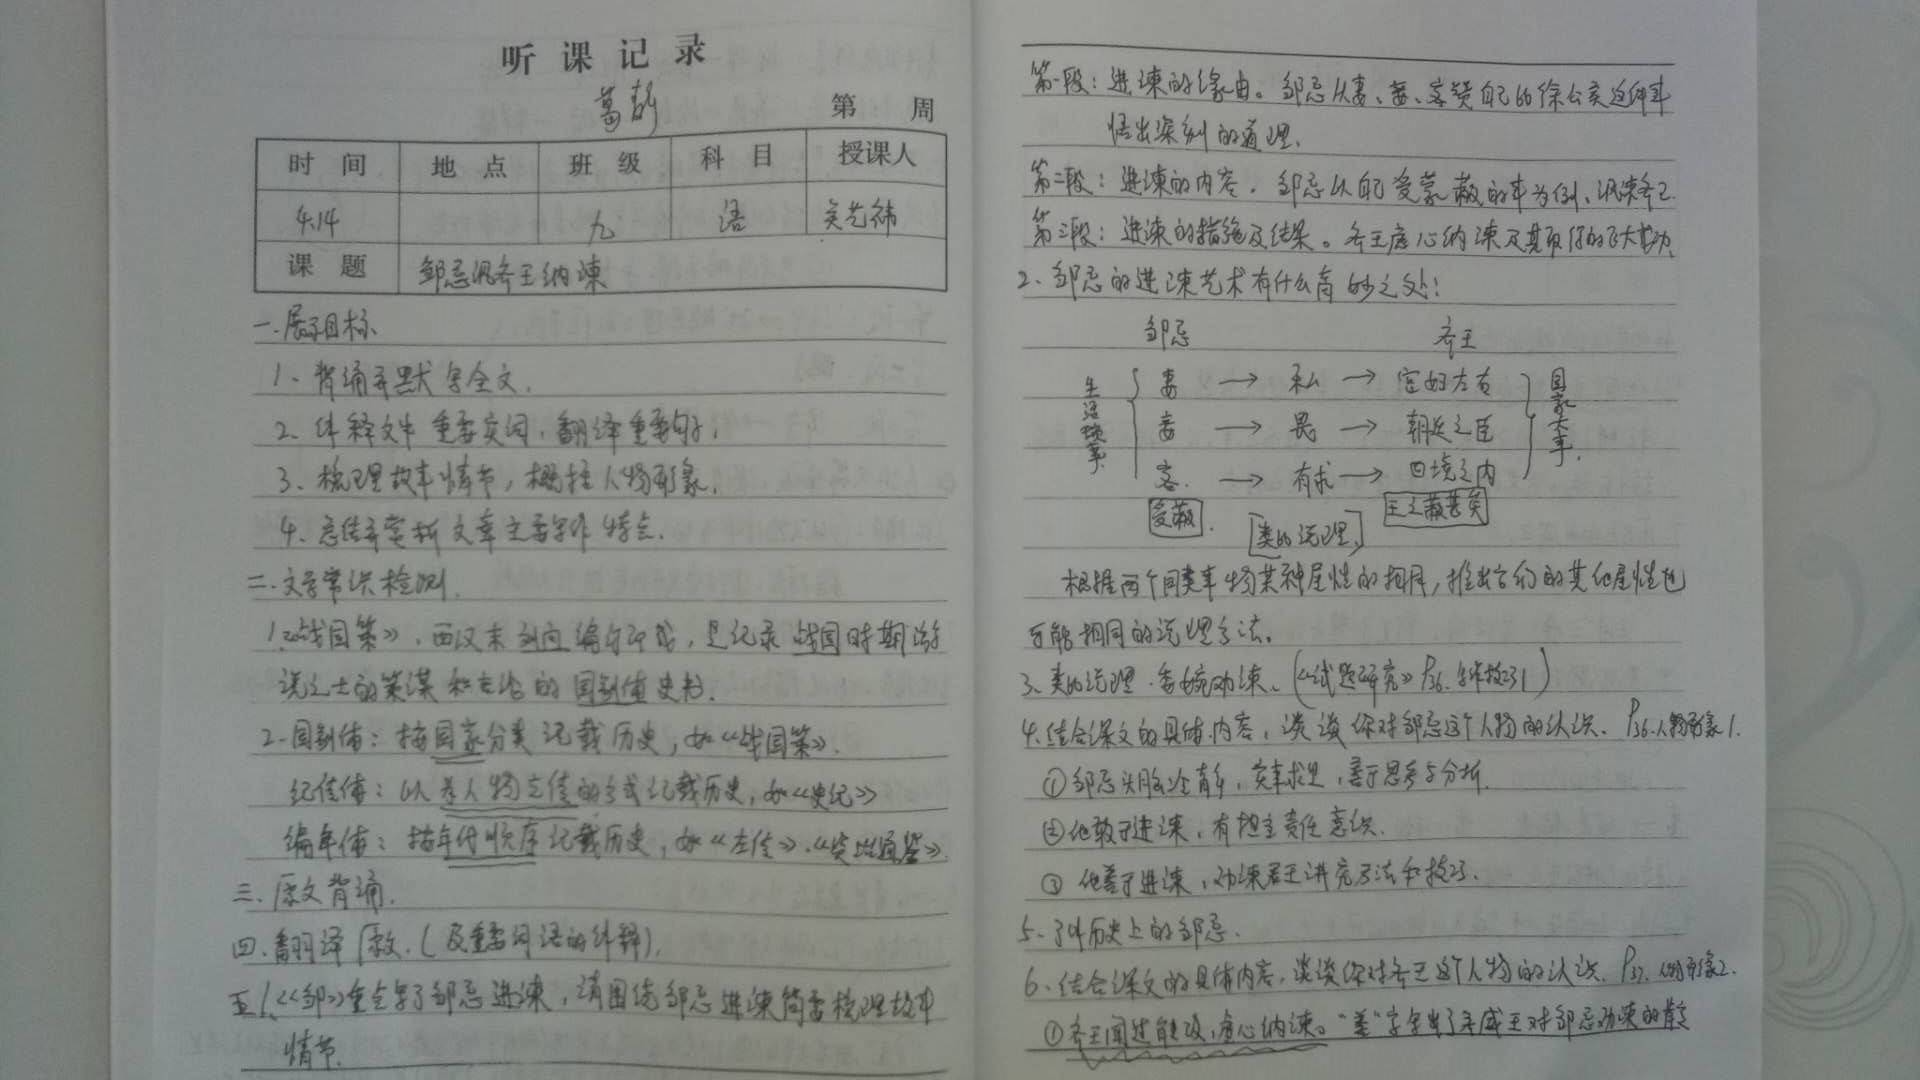 听课记录
第 周
时间 地点 班级 科目 授课人
4.14 九 语
课题 邹忌讽齐王纳谏
一.展示目标
1、背诵并默写全文.
2、解释文中重要实词,翻译重要句子;
3、梳理故事情节,概括人物形象.
4、总结并赏析文章主要写作特点.
二.文学常识检测.
1.《战国策》,西汉末刘向编订而成,是记录战国时期游
说之士的策谋和言论的国别体史书.
2.国别体:按国家分类记载历史,如《战国策》.
纪传体:以为人物立传的方式记载历史,如《史记》
编年体:按年份顺序记载历史,如《左传》.《资治通鉴》.
三.原文背诵.
四.翻译原文.(及重要词语的解释).
五1.《邹》重点写了邹忌进谏,请围绕邹忌进谏简要梳理故事
情节.
第一段:进谏的缘由。邹忌从妻、妾、客赞自己比徐公美这件事
悟出深刻的道理.
第二段:进谏的内容.邹忌以自己受蒙蔽的事为例,讽谏齐王.
第三段:进谏的措施及结果。齐王虚心纳谏及其取得的巨大成功.
2、邹忌的进谏艺术有什么高妙之处:
邹忌 齐王
生活琐事 { 妻 → 私 → 宫妇左右 } 国家大事.
妾 → 畏 → 朝廷之臣
客. → 有求 → 四境之内
受蔽. [类比说理,] 王之蔽甚矣
根据两个同类事物某种属性的相同,推出它们的其他属性也
可能相同的说理方法.
3、类比说理.委婉劝谏.(《试题研究》P36.写作技巧1)
4.结合课文的具体内容,谈谈你对邹忌这个人物的认识.P36.人物形象1.
①邹忌头脑冷静,实事求是,善于思考与分析.
②他敢于进谏,有担当责任意识.
③他善于进谏,劝谏君王讲究方法和技巧.
5、了解历史上的邹忌.
6、结合课文的具体内容,谈谈你对齐王这个人物的认识.P37.人物形象2.
①齐王闻过能改,虚心纳谏。“善”字写出了齐威王对邹忌劝谏的